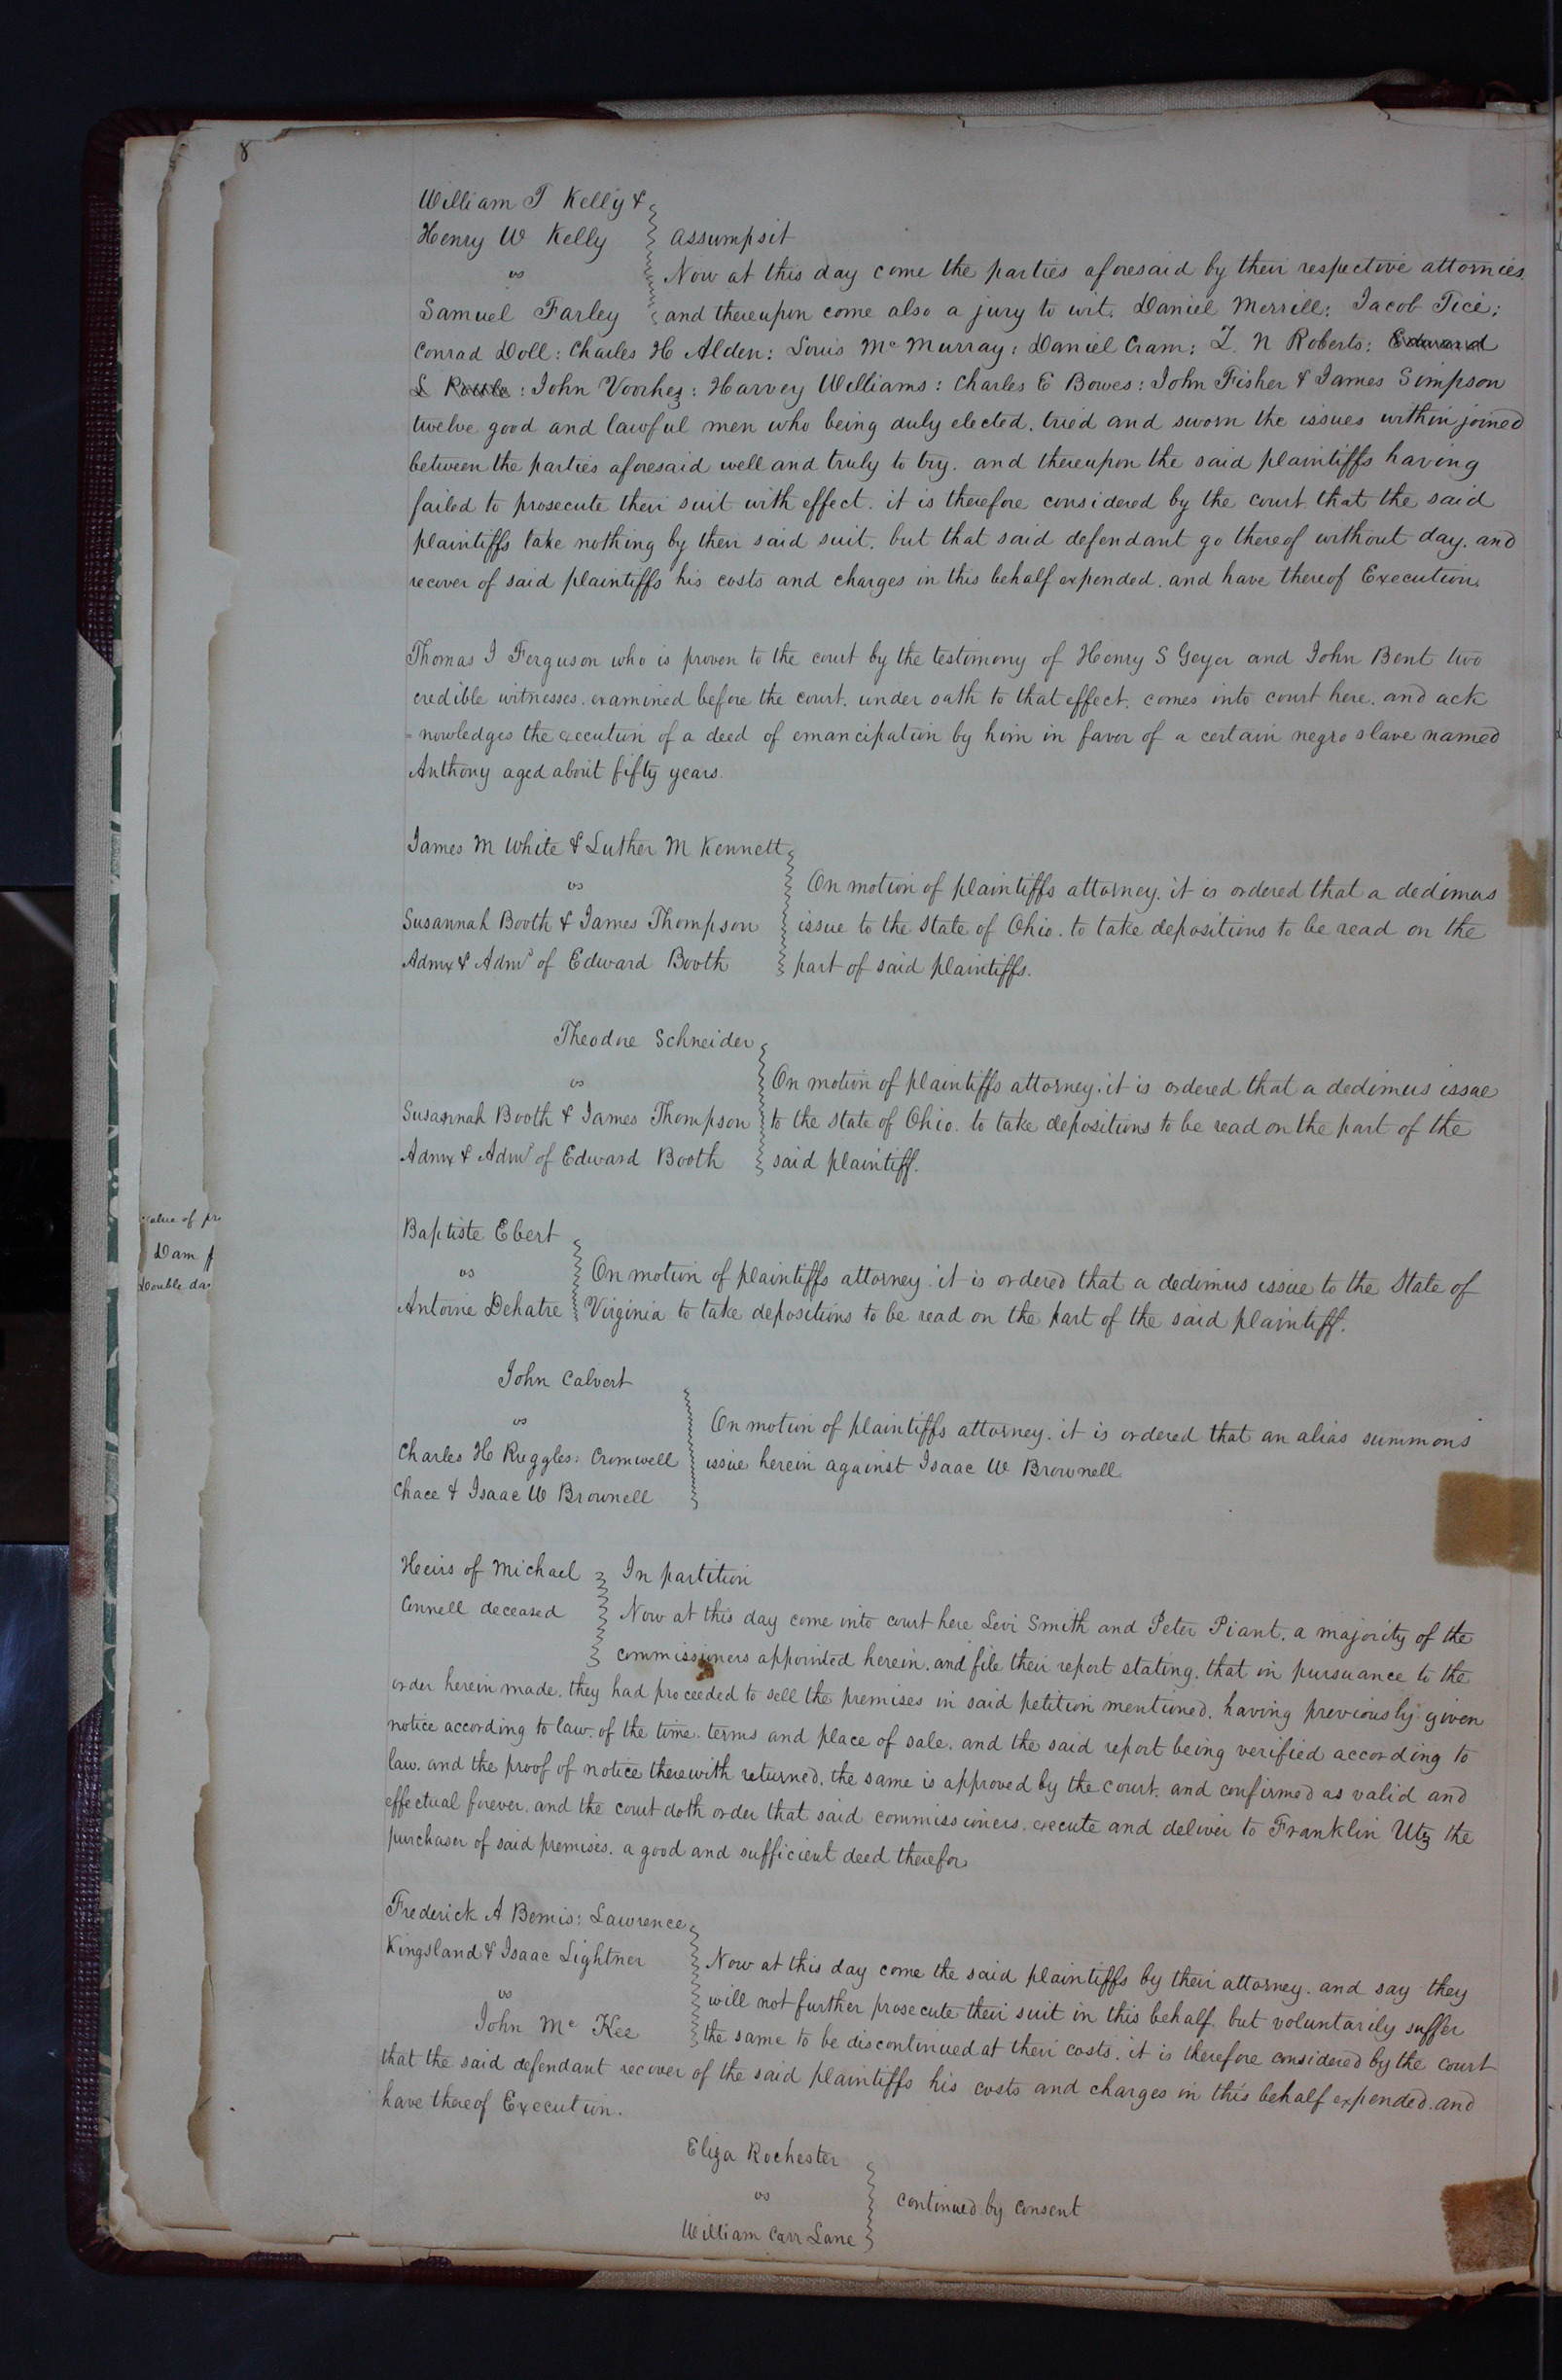 8
William T Kelly &
Henry W Kelly
vs
Samuel Farley
Assumpsit
Now at this day come the parties aforesaid by their respective attornies
and thereupon come also a jury to wit. Daniel Merrill: Jacob Tice:
Conrad Doll: Charles H Alden: Louis Mc Murray: Daniel Cram: Z. N Roberts: Edward
L : John Voorhez: Harvey Williams: Charles E Bowes: John Fisher & James Simpson
twelve good and lawful men who being duly elected. tried and sworn the issues within joined
between the parties aforesaid well and truly to try. and thereupon the said plaintiffs having
failed to prosecute their suit with effect. it is therefore considered by the court that the said
plaintiffs take nothing by their said suit. but that said defendant go thereof without day. and
recover of said plaintiffs his costs and charges in this behalf expended. and have thereof Execution.
Thomas J Ferguson who is proven to the court by the testimony of Henry S Geyer and John Bent two
credible witnesses. examined before the court. under oath to that effect. comes into court here. and ack
-nowledges the execution of a deed of emancipation by him in favor of a certain negro slave named
Anthony aged about fifty years.
James M White & Luther M Kennett
vs
Susannah Booth & James Thompson
Admx & Admr of Edward Booth
On motion of plaintiffs attorney. it is ordered that a dedimus
issue to the State of Ohio. to take depositions to be read on the
part of said plaintiffs.
Theodore Schneider
vs
Susannah Booth & James Thompson
Admx & Admr of Edward Booth
On motion of plaintiffs attorney. it is ordered that a dedimus issue
to the State of Ohio. to take depositions to be read on the part of the
said plaintiff.
value of pr
Dam f
Double da
Baptiste Ebert
vs
Antoine Dehatre
On motion of plaintiffs attorney. it is ordered that a dedimus issue to the State of
Virginia to take depositions to be read on the part of the said plaintiff.
John Calvert
vs
Charles H Ruggles: Cromwell
Chace & Isaac W Brownell
On motion of plaintiffs attorney. it is ordered that an alias summons
issue herein against Isaac W Brownell
Heirs of Michael
Connell deceased
In partition
Now at this day come into court here Levi Smith and Peter Piant. a majority of the
commissioners appointed herein. and file their report stating. that in pursuance to the
order herein made. they had proceeded to sell the premises in said petition mentioned. having previously given
notice according to law. of the time. terms and place of sale. and the said report being verified according to
law. and the proof of notice therewith returned. the same is approved by the court. and confirmed as valid and
effectual forever. and the court doth order that said commissioners. execute and deliver to Franklin Utz the
purchaser of said premises. a good and sufficient deed therefor
Frederick A Bemis: Lawrence
Kingsland & Isaac Lightner
vs
John Mc Kee
Now at this day come the said plaintiffs by their attorney. and say they
will not further prosecute their suit in this behalf. but voluntarily suffer
the same to be discontinued at their costs. it is therefore considered by the court
that the said defendant recover of the said plaintiffs his costs and charges in this behalf expended. and
have thereof Execution.
Eliza Rochester
vs
William Carr Lane
continued by consent